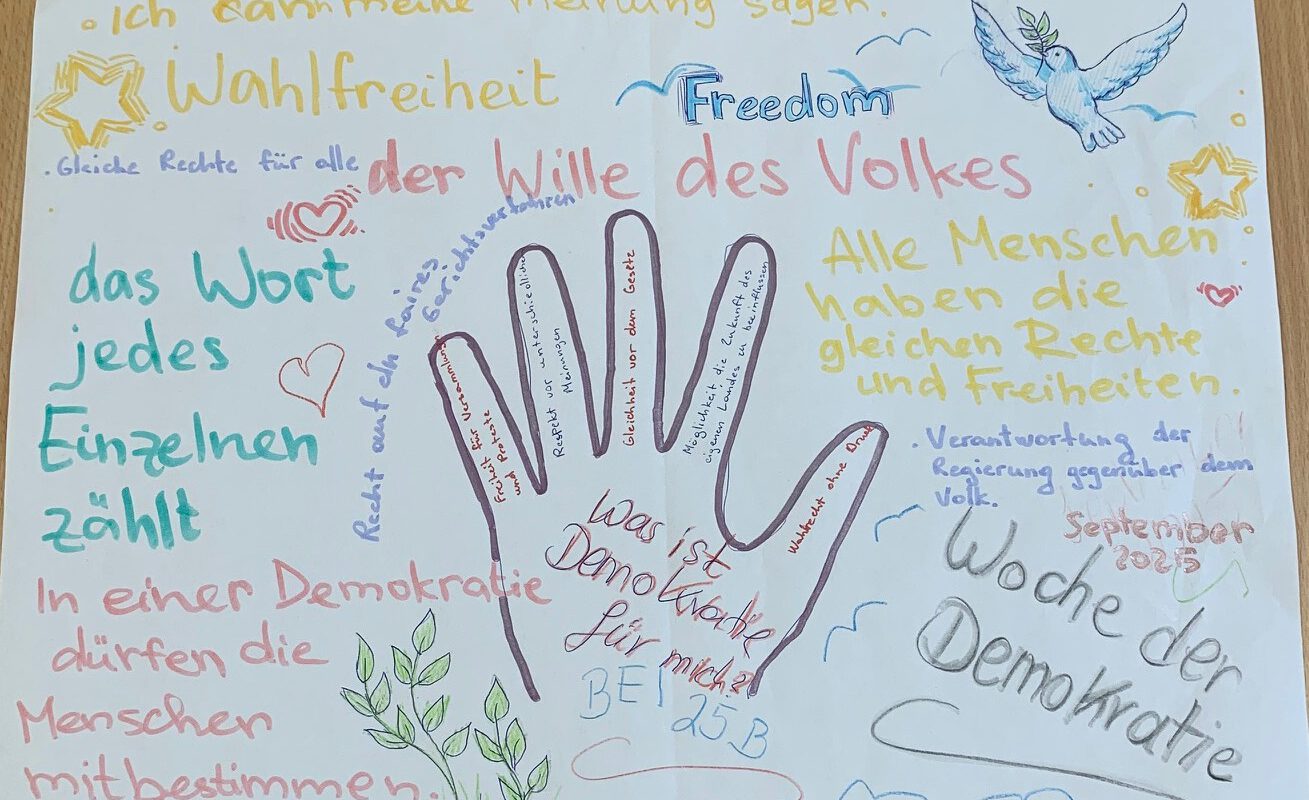 . Ich kann meine Meinung sagen.
Wahlfreiheit
Freedom
. Gleiche Rechte für alle
der Wille des Volkes
Recht auf ein faires
Gerichtsverfahren
das Wort
jedes
Einzelnen
zählt
Alle Menschen
haben die
gleichen Rechte
und Freiheiten.
Freiheit für Versammlungen
und Proteste
Respekt vor unterschiedlichen
Meinungen
Gleichheit vor dem Gesetz
Möglichkeit die Zukunft des
eigenen Landes zu beeinflussen
Wahlrecht ohne Druck
. Verantwortung der
Regierung gegenüber dem
Volk.
September
2025
Was ist
Demokratie
für mich?
BEI
25B
In einer Demokratie
dürfen die
Menschen
mitbestimmen.
Woche der
Demokratie